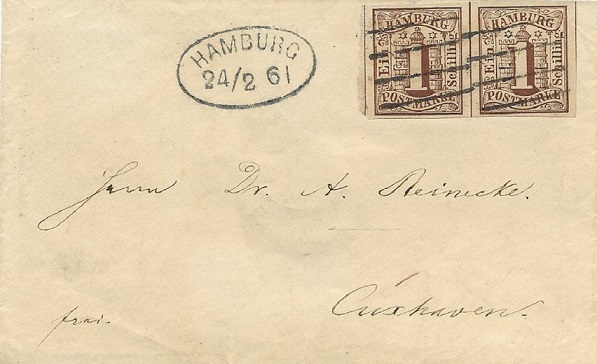 HAMBURG
24/2 61
HAMBURG
Ein
1
Schilling
POSTMARKE
HAMBURG
Ein
1
Schilling
POSTMARKE
Herrn Dr. A. Reinecke.
Cuxhaven.
frei.